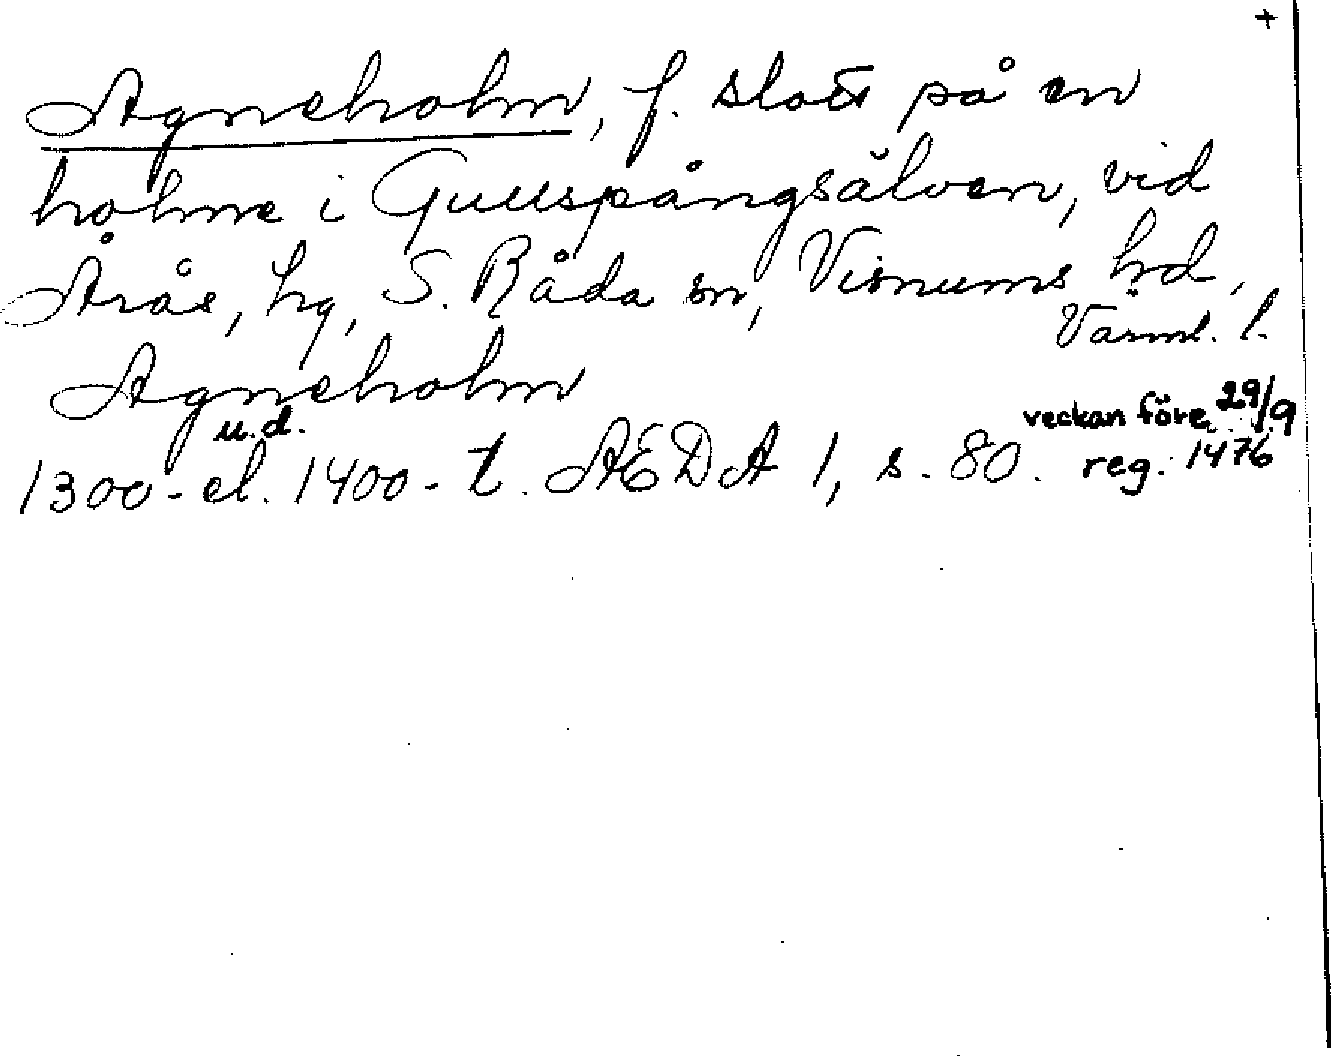 +
Agneholm, f. slott på en
holme i Gullspångsälven, vid
Årås, hg, S. Råda sn, Visnums hd,
Värml. l.
Agneholm
u.d. veckan före 29/9
1300- el. 1400-t. AEDA 1, s. 80. reg. 1476